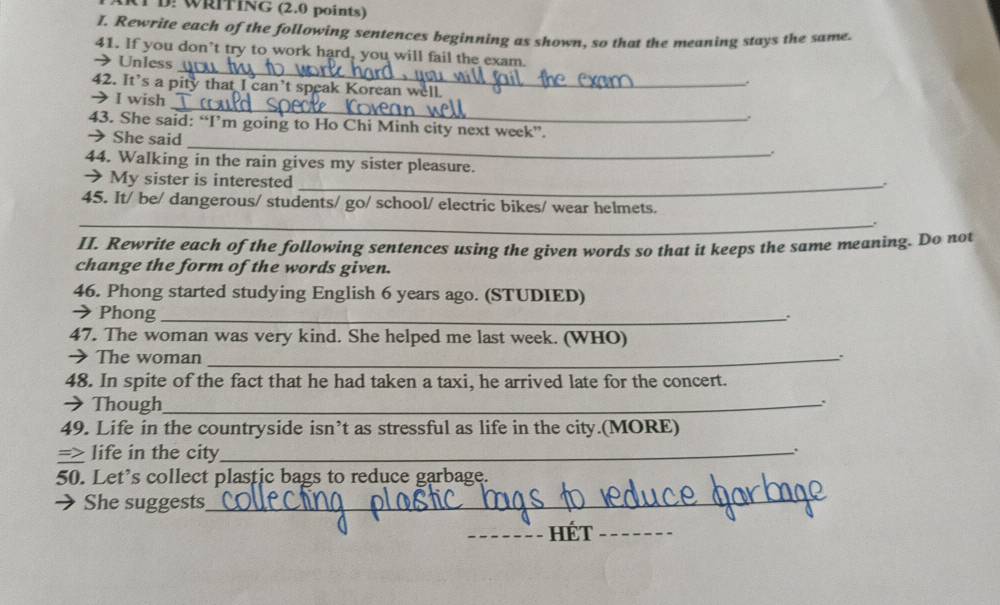 PART D: WRITING (2.0 points)
I. Rewrite each of the following sentences beginning as shown, so that the meaning stays the same.
41. If you don't try to work hard, you will fail the exam.
→ Unless you try to work hard, you will fail the exam.
42. It's a pity that I can't speak Korean well.
→ I wish I could speak Korean well.
43. She said: "I'm going to Ho Chi Minh city next week".
→ She said ___.
44. Walking in the rain gives my sister pleasure.
→ My sister is interested ___.
45. It/ be/ dangerous/ students/ go/ school/ electric bikes/ wear helmets.
___.
II. Rewrite each of the following sentences using the given words so that it keeps the same meaning. Do not
change the form of the words given.
46. Phong started studying English 6 years ago. (STUDIED)
→ Phong ___.
47. The woman was very kind. She helped me last week. (WHO)
→ The woman ___.
48. In spite of the fact that he had taken a taxi, he arrived late for the concert.
→ Though ___.
49. Life in the countryside isn't as stressful as life in the city.(MORE)
=> life in the city ___.
50. Let's collect plastic bags to reduce garbage.
→ She suggests collecting plastic bags to reduce garbage
------- HẾT -------